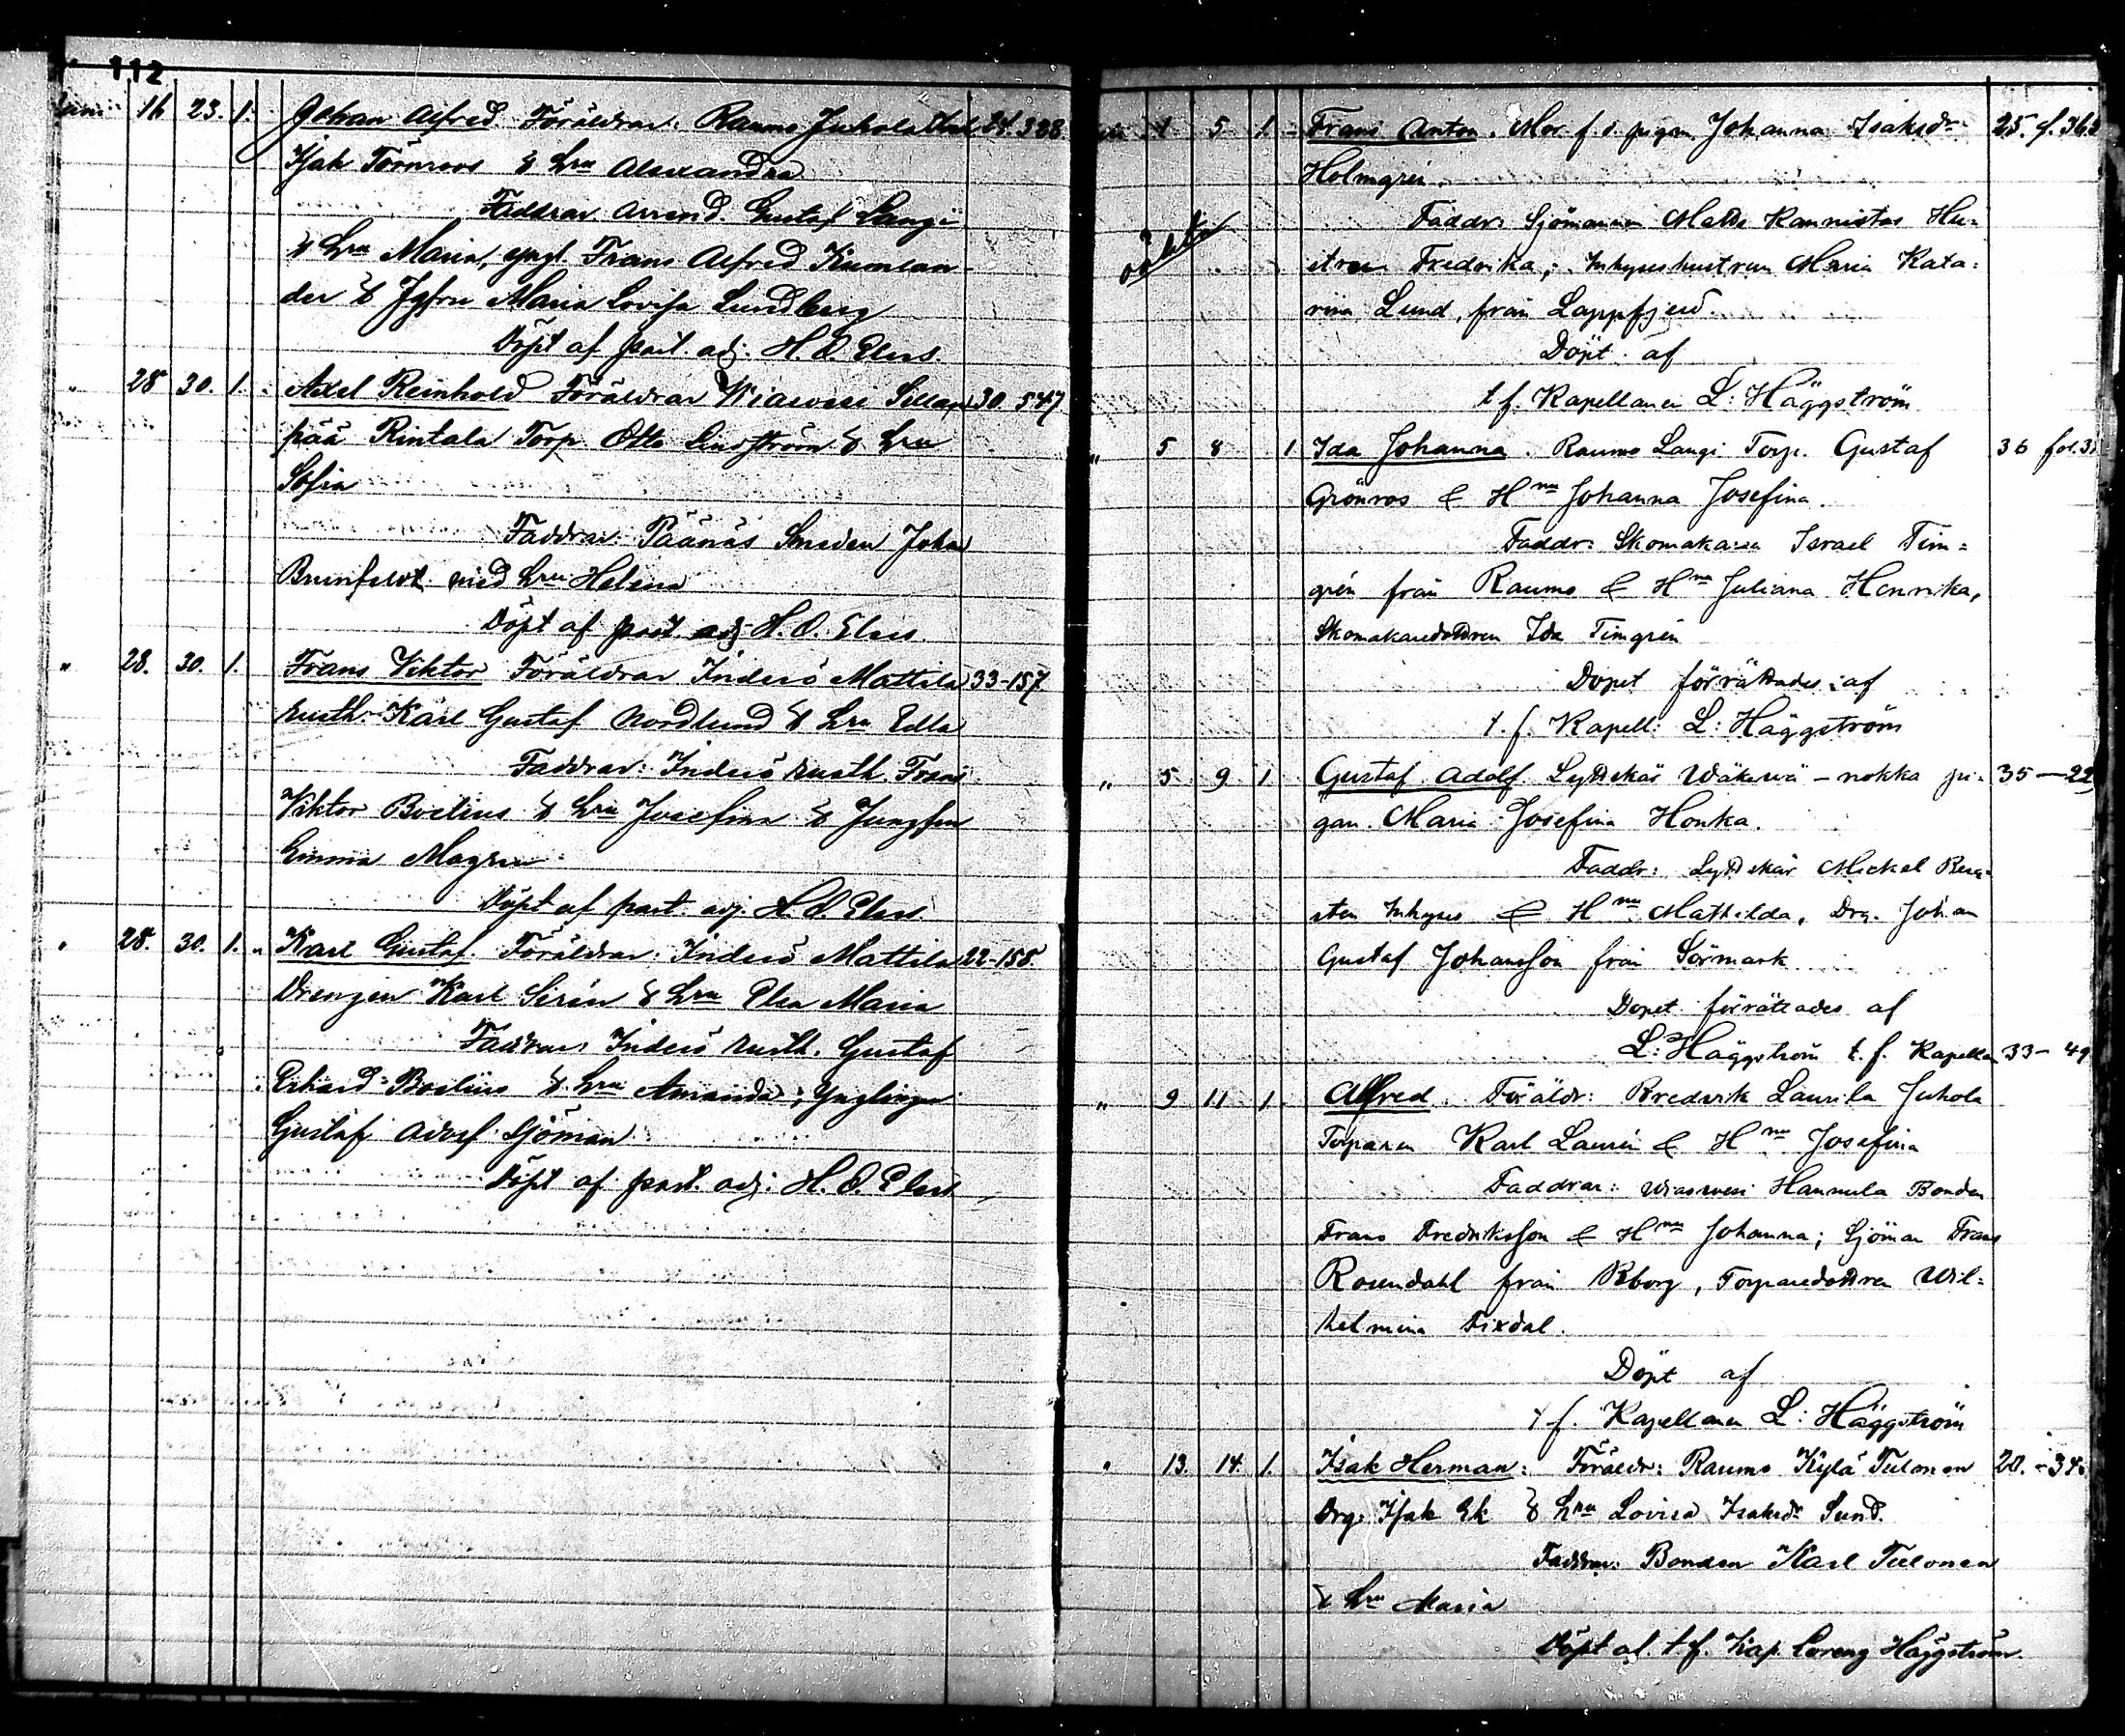 112
Juni 16 23. 1. Johan Alfred. Föräldrar: Raumo Juhola 24. 388
Isak Törnroos & hru Alexandra
Faddrar Arrend. Gustaf Langi
& hru Maria, yngl. Frans Alfred Kumlan-
der & Jgfru Maria Lovisa Lundberg
Döpt af past. adj. H. O. Elers.
" 28 30. 1. Axel Reinhold Föräldrar Wiasvesi Sillan 30. 547
pää Rintala Torp. Otto Lindström & hru
Sofia
Faddrar: Päänäs Smeden Johan
Brunfeldt med hru Helena
Döpt af past. adj. H. O. Elers.
" 28. 30. 1. Frans Viktor Föräldrar Inderö Mattila 33-157
rusth. Karl Gustaf Nordlund & hru Edla
Faddrar: Inderö rusth. Frans
Viktor Boelius & hru Josefina & Jungfru
Emma Magren
Döpt af past. adj. H. O. Elers.
" 28. 30. 1. " Karl Gustaf. Föräldrar: Inderö Mattila 22-158.
Drengen Karl Sirén & hru Elea Maria
Faddrar: Inderö rusth. Gustaf
Erhard Boelius & hru Amanda; Ynglingen
Gustaf Adolf Sjöman
Döpt af past. adj. H. O. Elers
1 5 1. Frans Anton. Mor f. d. pigan Johanna Isaksdr 25. f. 363
Holmgren.
oäkta
Faddr: Sjömannen Matts Kannistos Hu-
strun Fredrika; Inhyseshustrun Maria Kata-
rina Lund, från Lappfjerd.
Döpt af
t. f. Kapellanen L: Häggström
" 5 8 1 Ida Johanna. Raumo Langi Torp. Gustaf 36 fol. 3
Grönros & Hnu Johanna Josefina.
Faddr: Skomakaren Israel Tim-
grén från Raumo & Hnu Juliana Henrika,
Skomakaredottren Ida Timgrén
Dopet förrättades af
t. f. Kapell: L: Häggström
" 5 9 1 Gustaf Adolf Lyttskär Wäkevä-nokka pi- 35-22
gan Maria Josefina Honka.
Faddr: Lyttskär Mickel Berg-
sten Inhyses & Hnu Mathilda, Drg. Johan
Gustaf Johansson från Sörmark
Dopet förrättades af
L: Häggström t. f. Kapellan 33-49
" 9 11 1. Alfred. Föräldr: Bredvik Laurila Juhola
Torparen Karl Laurén & Hnu Josefina
Faddrar: Wiasvesi Hannula Bonden
Frans Fredriksson & Hnu Johanna; Sjöman Frans
Rosendahl från Bborg, Torparedottren Wil-
helmina Fixdal.
Döpt af
t f. Kapellanen L: Häggström
" 13. 14. 1. Isak Herman: Föräldr: Raumo Kylä Tulonen 20.-34
Drg. Isak Ek & hru Lovisa Isaksdr Sund.
Faddrar: Bonden Karl Tulonen
& hru Maria
Döpt af t. f. Kap. Lorenz Häggström.